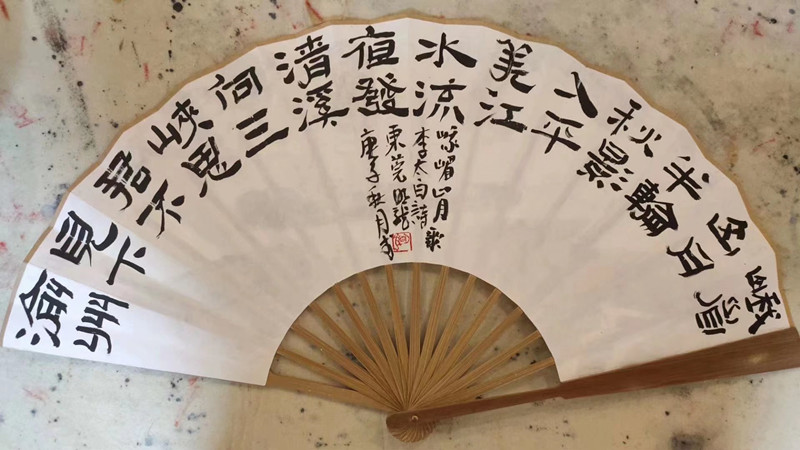 峨眉
山月
半輪
秋影
入平
羌江
水流
夜發
清溪
向三
峽思
君不
見下
渝州
峨嵋山月歌
李太白詩
東莞
庚子秋月書